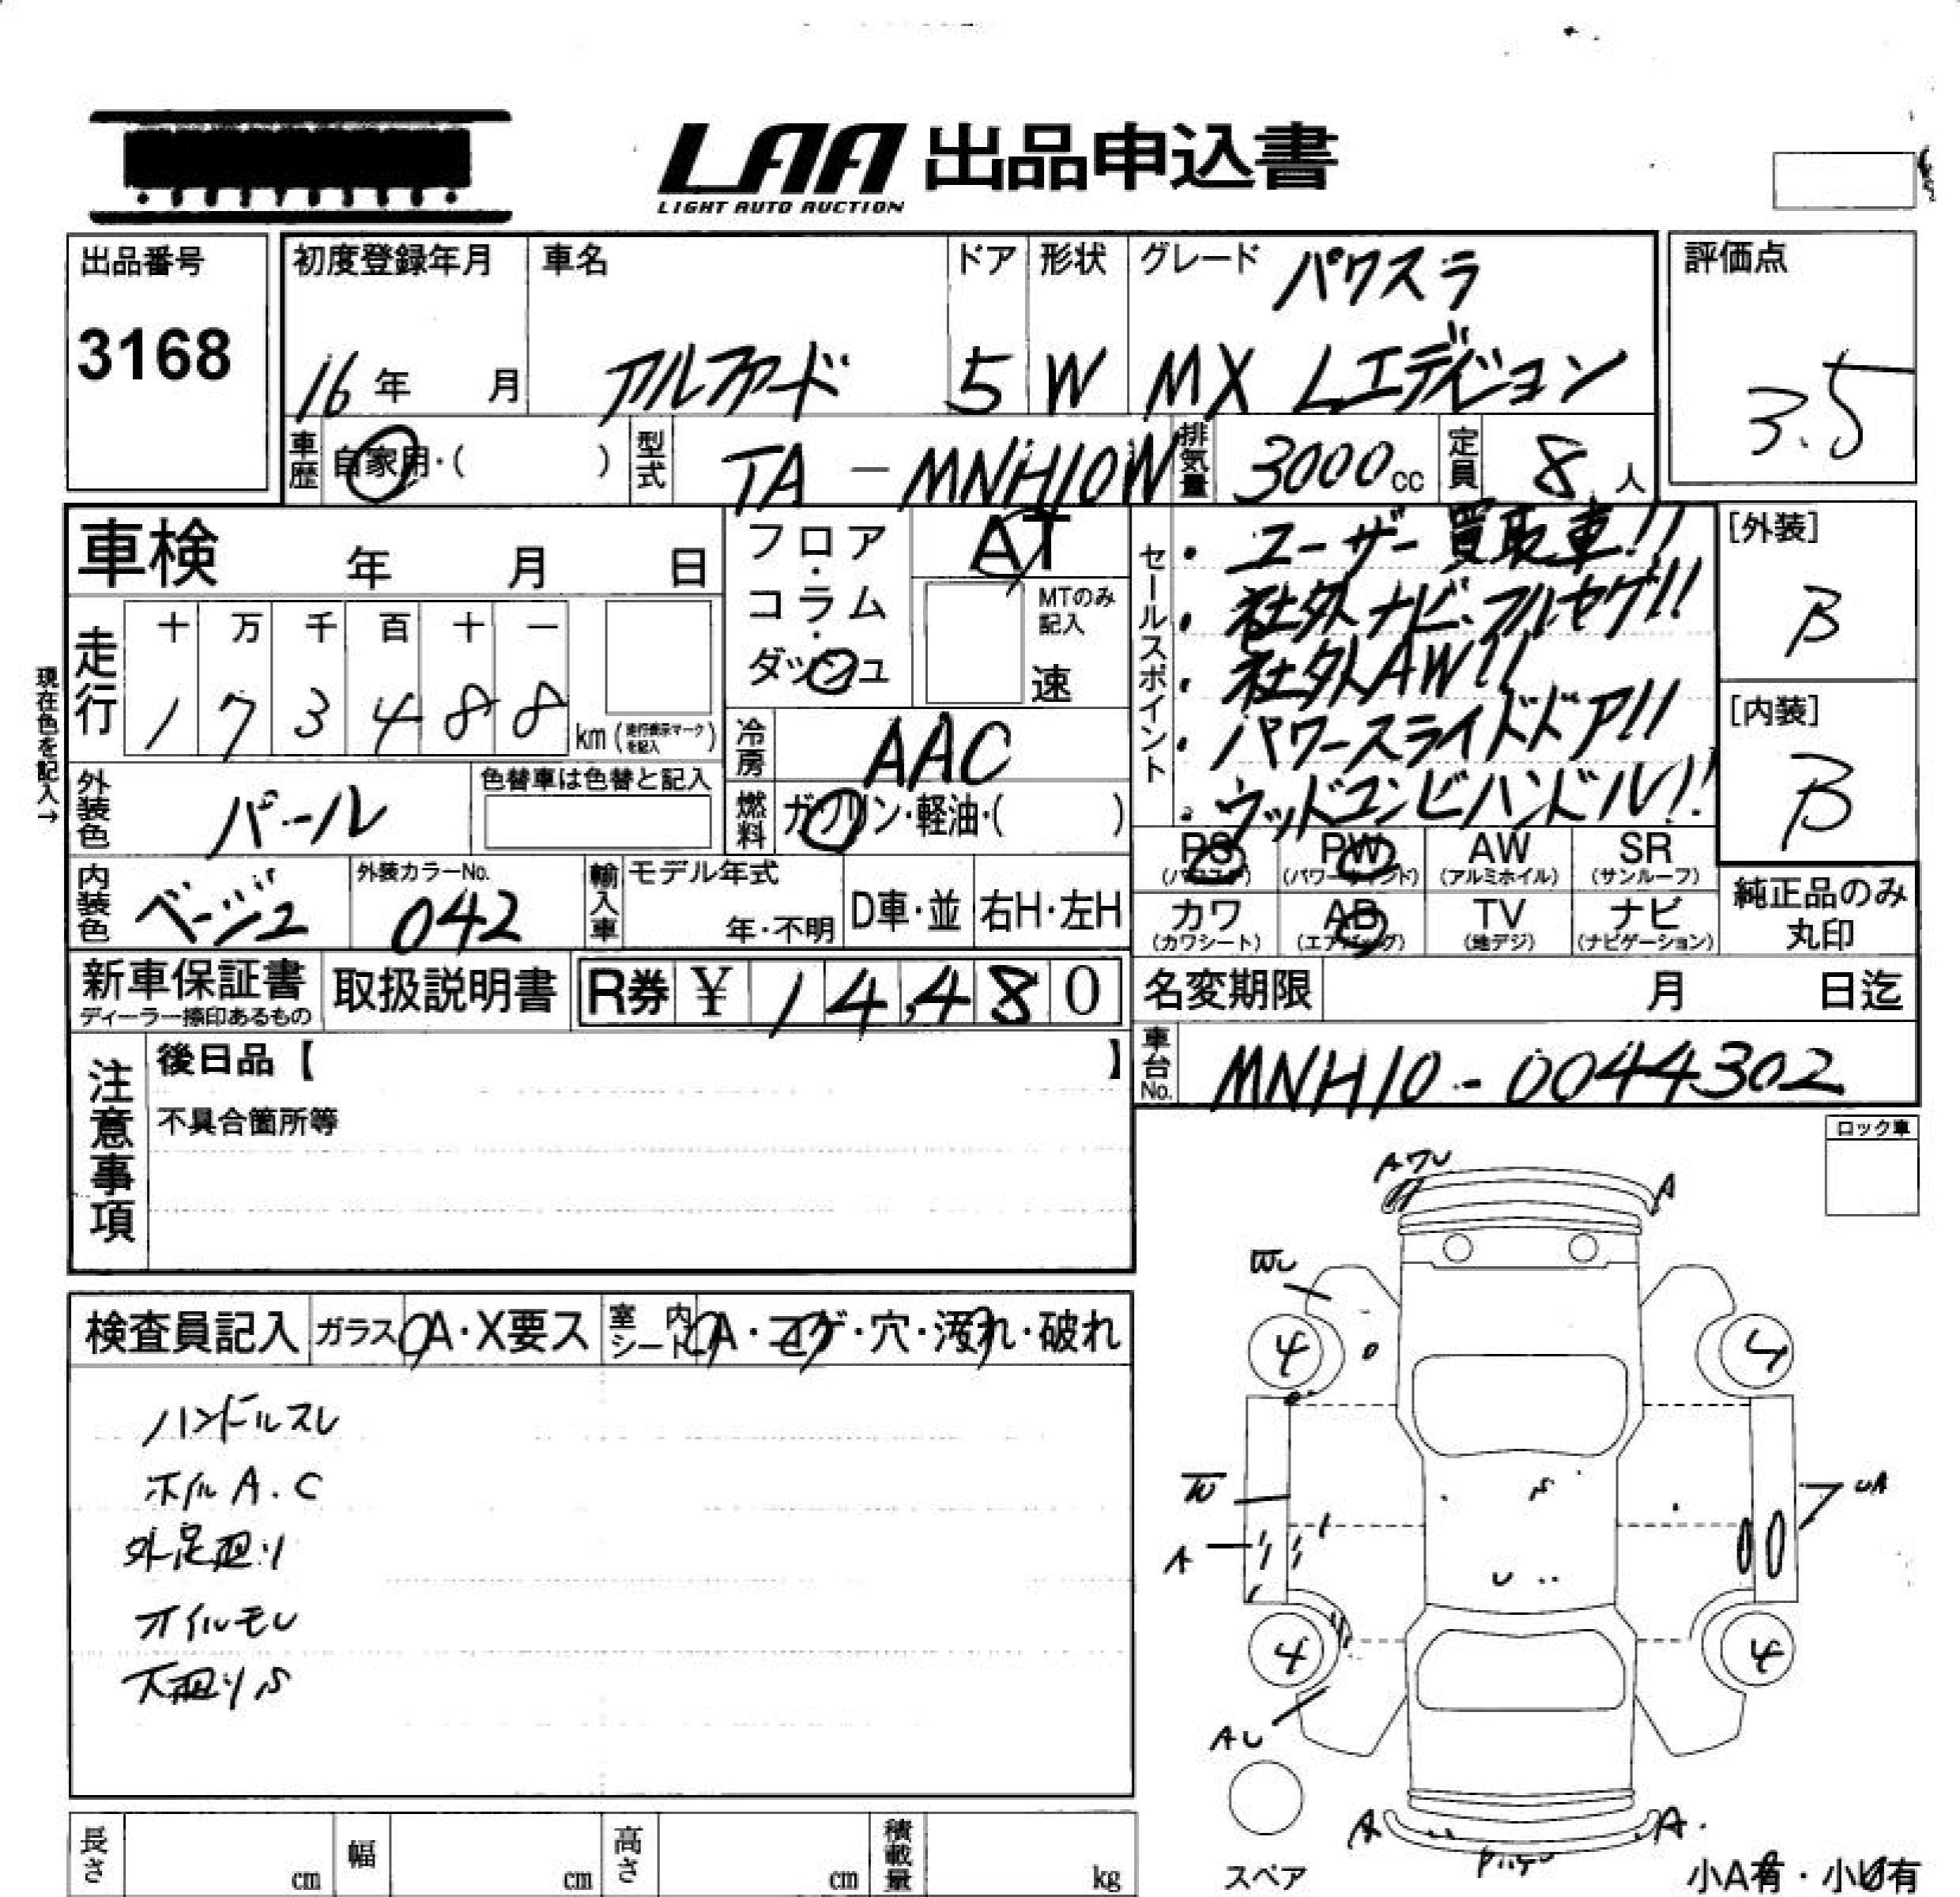 LAA 出品申込書
LIGHT AUTO AUCTION
出品番号
3168
初度登録年月
16年 月
車名
アルファード
ドア
5
形状
W
グレード パワスラ
MX Lエディション
評価点
3.5
車歴 自家用・( )
型式 TA-MNH10W
排気量 3000cc
定員 8人
車検 年 月 日
フロア・コラム・ダッシュ
AT
MTのみ記入
速
走行
十 万 千 百 十 一
1 7 3 4 8 8 km (走行表示マークを記入)
現在色を記入→
冷房 AAC
燃料 ガソリン・軽油・( )
外装色 パール
色替車は色替と記入
内装色 ベージュ
外装カラーNo.
042
輸入車 モデル年式
年・不明
D車・並
右H・左H
セールスポイント
・ユーザー買取車!!
・社外ナビ・フルセグ!!
・社外AW!!
・パワースライドドア!!
・ウッドコンビハンドル!!
[外装]
B
[内装]
B
PS (パワステ)
PW (パワーウィンド)
AW (アルミホイル)
SR (サンルーフ)
カワ (カワシート)
AB (エアバッグ)
TV (地デジ)
ナビ (ナビゲーション)
純正品のみ丸印
新車保証書
ディーラー捺印あるもの
取扱説明書
R券 ¥ 14,480
名変期限 月 日迄
車台No. MNH10-0044302
注意事項
後日品【 】
不具合箇所等
ロック車
検査員記入
ガラス A・X要ス
室内シート A・コゲ・穴・汚れ・破れ
ハンドルスレ
ホイルA.C
外足廻り
オイルモレ
下廻りS
AワU
A
WU
4
4
W
A
UA
S
U
4
4
AU
A
A
スペア
小A有・小U有
長さ cm
幅 cm
高さ cm
積載量 kg